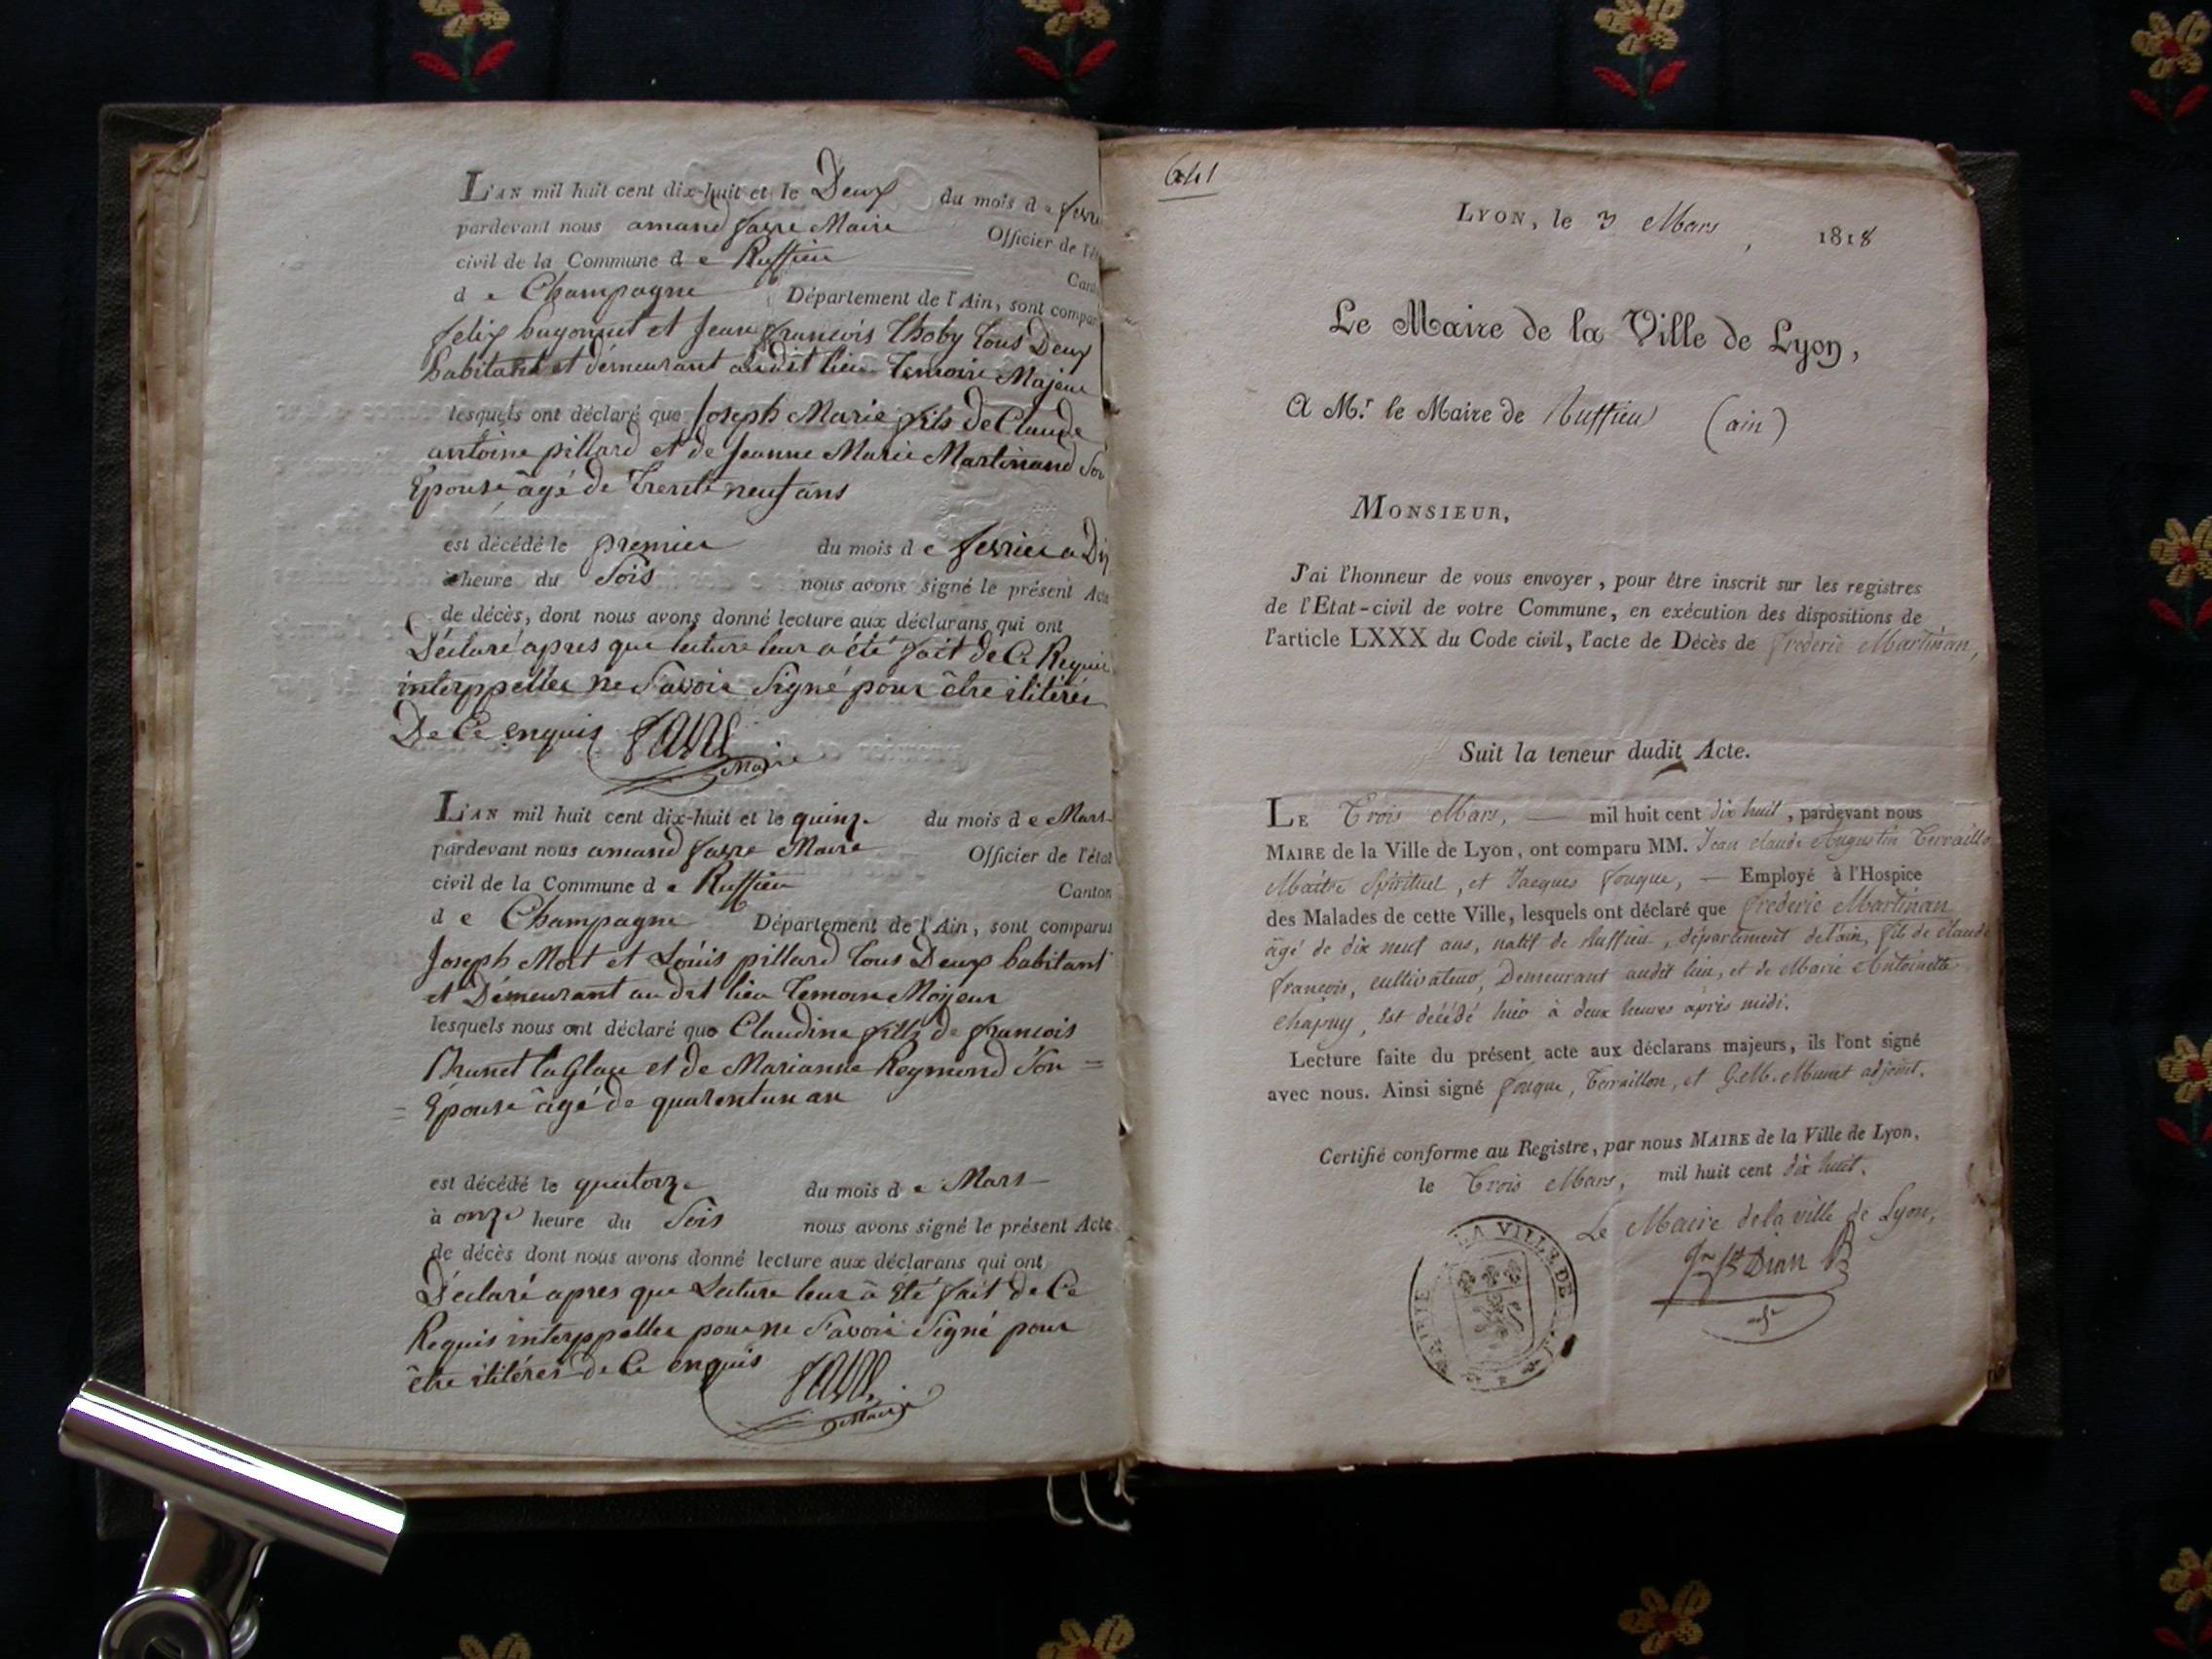 L'AN mil huit cent dix-huit et le Deux du mois de
pardevant nous amand favre Maire Officier de
civil de la Commune de Ruffieu
de Champagne Département de l'Ain, sont
felix et Jean francois Thoby tous Deux
habitant et démeurant audit lieu Temoin Majeur
lesquels ont déclaré que Joseph Marie fils de Claude
antoine pillard et de Jeanne Marie Martinand Son
Epouse âgé de Trente neuf ans
est décédé le premier du mois de fevrier a
heure du Soir nous avons signé le présent Acte
de décès, dont nous avons donné lecture aux déclarans qui ont
Déclaré apres que lecture leur a été fait de Ce Requis
interppeller ne Savoir Signé pour être ilitérés
De Ce enquis favre
Maire
L'AN mil huit cent dix-huit et le quinze du mois de Mars
pardevant nous amand favre Maire Officier de l'état
civil de la Commune de Ruffieu Canton
de Champagne Département de l'Ain, sont comparus
Joseph Mort et Louis pillard tous Deux habitant
et Démeurant au dit lieu Temoin Majeur
lesquels nous ont déclaré que Claudine fille de francois
Brunet la Glace et de Marianne Reymond Son =
= Epouse âgé de quarentun an
est décédé le quatorze du mois de Mars
à onze heure du Soir nous avons signé le présent Acte
de décès dont nous avons donné lecture aux déclarans qui ont
Déclaré apres que Lecture leur à Eté fait de Ce
Requis interppeller pour ne Savoir Signé pour
être ilitérés de Ce enquis favre
Maire
641
LYON, le 3 Mars, 1818
Le Maire de la Ville de Lyon,
A M.r le Maire de Ruffieu (ain)
MONSIEUR,
J'ai l'honneur de vous envoyer, pour être inscrit sur les registres
de l'Etat-civil de votre Commune, en exécution des dispositions de
l'article LXXX du Code civil, l'acte de Décès de frederic Martinan,
Suit la teneur dudit Acte.
LE Trois Mars, — mil huit cent dix huit, pardevant nous
MAIRE de la Ville de Lyon, ont comparu MM. Jean claude Augustin Terraillon
Maitre Spirituel, et Jacques fouque, — Employé à l'Hospice
des Malades de cette Ville, lesquels ont déclaré que frederic Martinan
âgé de dix neuf ans, natif de Ruffieu, département de l'ain, fils de claude
françois, cultivateur, Demeurant audit lieu, et de Marie Antoinette
chapuy, Est décédé hier à deux heures après midi.
Lecture faite du présent acte aux déclarans majeurs, ils l'ont signé
avec nous. Ainsi signé fouque, Terraillon, et G.M. Munet adjoint.
Certifié conforme au Registre, par nous MAIRE de la Ville de Lyon,
le Trois Mars, mil huit cent dix huit.
Le Maire de la ville de Lyon,
MAIRIE LA VILLE DE